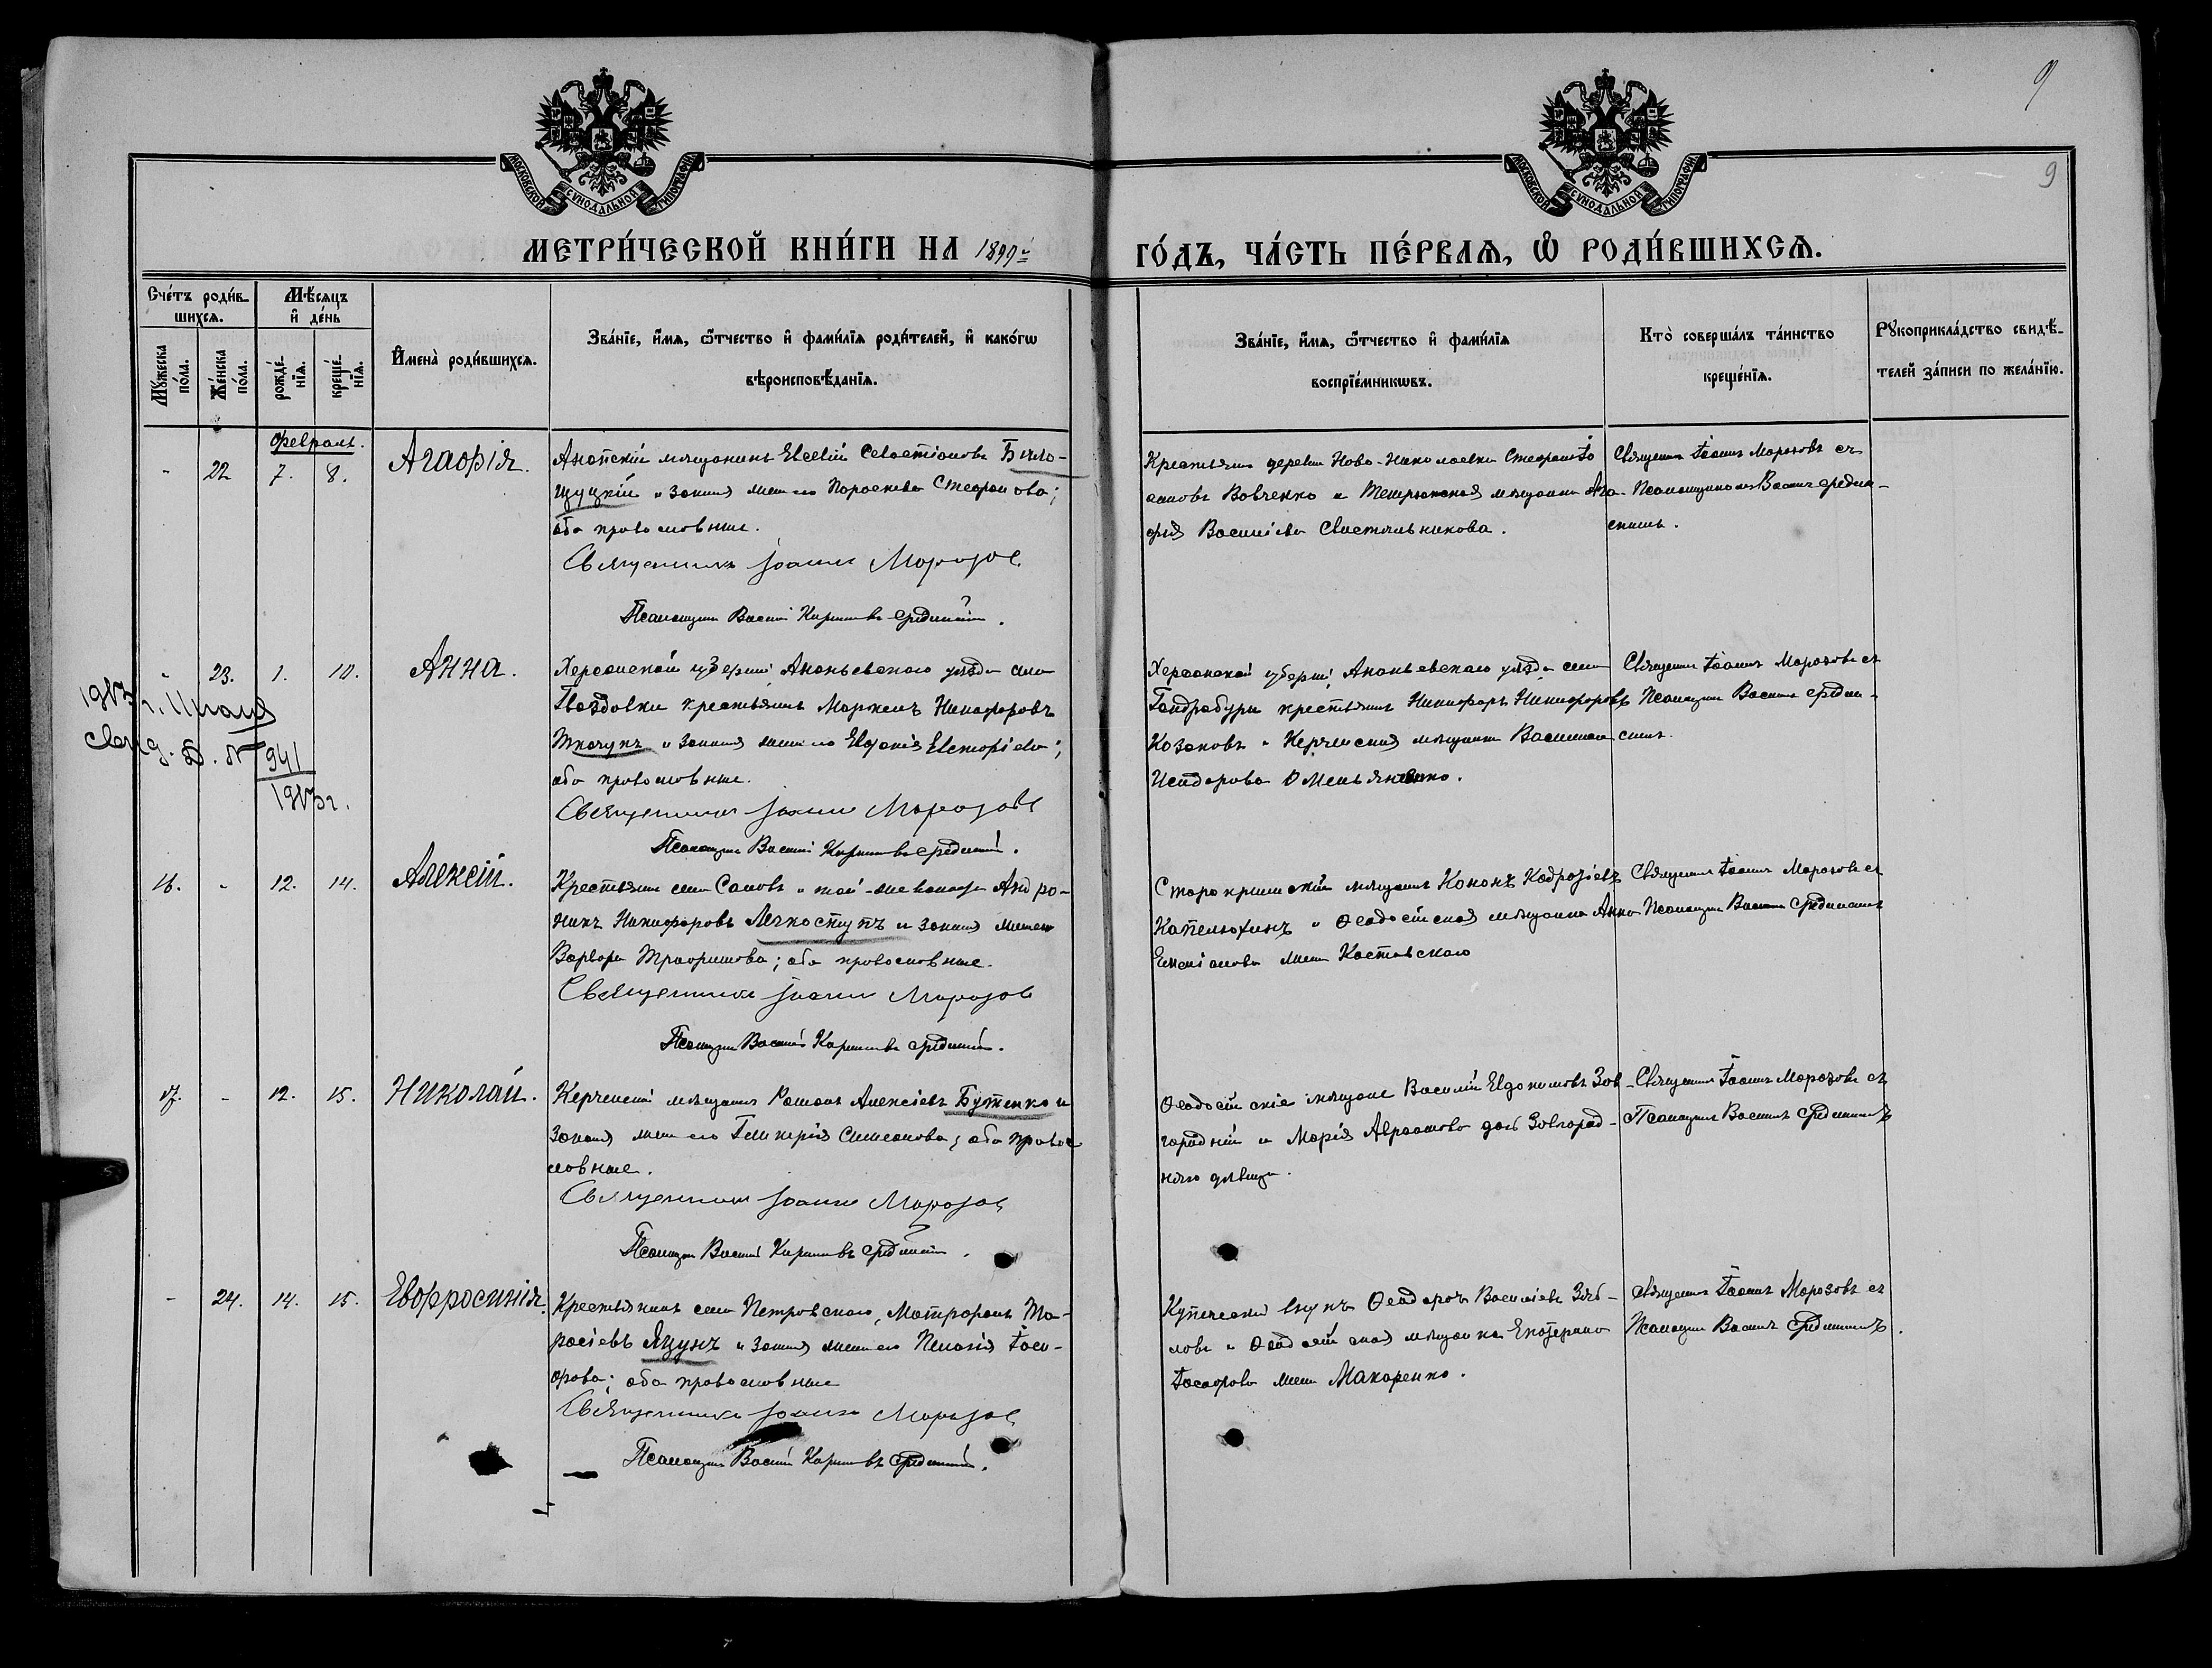 9
9
МОСКОВСКОЙ СѴНОДАЛЬНОЙ ТИПОГРАФІИ
МОСКОВСКОЙ СѴНОДАЛЬНОЙ ТИПОГРАФІИ
МЕТРИ́ЧЕСКОЙ КНИ́ГИ НА 1899й
ГО́ДЪ, ЧА́СТЬ ПЕ́РВАѦ, Ѽ РОДИ́ВШИХСѦ.
Сче́тъ роди́в-
шихсѧ.
Мѣ́сѧцъ
и҆ де́нь
Мꙋ́жеска
по́ла.
Же́нска
по́ла.
рожде́-
нїѧ.
креще́-
нїѧ.
И҆мена̀ роди́вшихсѧ.
Зва́нїе, и҆́мѧ, ѻ҆́тчество и҆ фами́лїѧ роди́телей, и҆ како́гѡ
вѣроисповѣ́данїѧ.
Зва́нїе, и҆́мѧ, ѻ҆́тчество и҆ фами́лїѧ
воспрїе́мникѡвъ.
Кто̀ соверша́лъ та́инство
креще́нїѧ.
Рꙋкоприкла́дство свидѣ́-
телей за́писи по жела́нїю.
Февраль.
- 22 7. 8. Агафія.
Анапскій мѣщанинъ Евсевій Севастіановъ Бѣло-
щуцкій и законная жена его Параскева Стефанова;
оба православные.
Священникъ Іоаннъ Морозовъ
Псаломщикъ Василій
Крестьянинъ деревни Ново-Николаевки Стефанъ Іо
анновъ Вовченко и Темрюкская мѣщанка Ага-
фія Василіева Свистильникова.
Священникъ Іоаннъ Морозовъ съ
Псаломщикомъ Василіемъ
- 23. 1. 10. Анна.
Херсонской губерніи Ананьевскаго уѣзда села
Гвоздовки крестьянинъ Маркелъ Никифоровъ
Ткачукъ и законная жена его Евгенія Елевферіева;
оба православные.
Священникъ Іоаннъ Морозовъ
Псаломщикъ Василій
Херсонской губерніи, Ананьевскаго уѣзда села
Гандрабуры крестьянинъ Никифоръ Никифоровъ
Козаковъ и Керченская мѣщанка Васса
Исидорова Омельяненко.
Священникъ Іоаннъ Морозовъ съ
Псаломщикомъ Василіемъ
1913 г.
941
1913 г.
16. - 12. 14. Алексій.
Крестьянинъ села Саловъ и той-же волости Андро-
никъ Никифоровъ Легкоступъ и законная жена его
Варвара Трофимова; оба православные.
Священникъ Іоаннъ Морозовъ
Псаломщикъ Василій
Старокрымскій мѣщанинъ Кононъ
Капелюхинъ и Ѳеодосійская мѣщанка Анна
жена Костовскаго
Священникъ Іоаннъ Морозовъ съ
Псаломщикомъ Василіемъ
17. - 12. 15. Николай.
Керченскій мѣщанинъ Романъ Алексіевъ Бутенко и
законная жена его Гликерія Симеонова; оба право
славные.
Священникъ Іоаннъ Морозовъ
Псаломщикъ Василій
Ѳеодосійскіе мѣщане Василій Евдокимовъ Зов-
городній и Марія Авраамова дочь Зовгород-
няго дѣвица.
Священникъ Іоаннъ Морозовъ съ
Псаломщикомъ Василіемъ
- 24. 14. 15. Евфросинія.
Крестьянинъ села Петровскаго, Митрофанъ Та-
расіевъ Яцунъ и законная жена его Пелагія Іоси-
фова; оба православные
Священникъ Іоаннъ Морозовъ
Псаломщикъ Василій
Купеческій внукъ Ѳеодоръ Василіевъ
и Ѳеодосійская мѣщанка Екатерина
Іосифова жена Макаренко.
Священникъ Іоаннъ Морозовъ съ
Псаломщикомъ Василіемъ